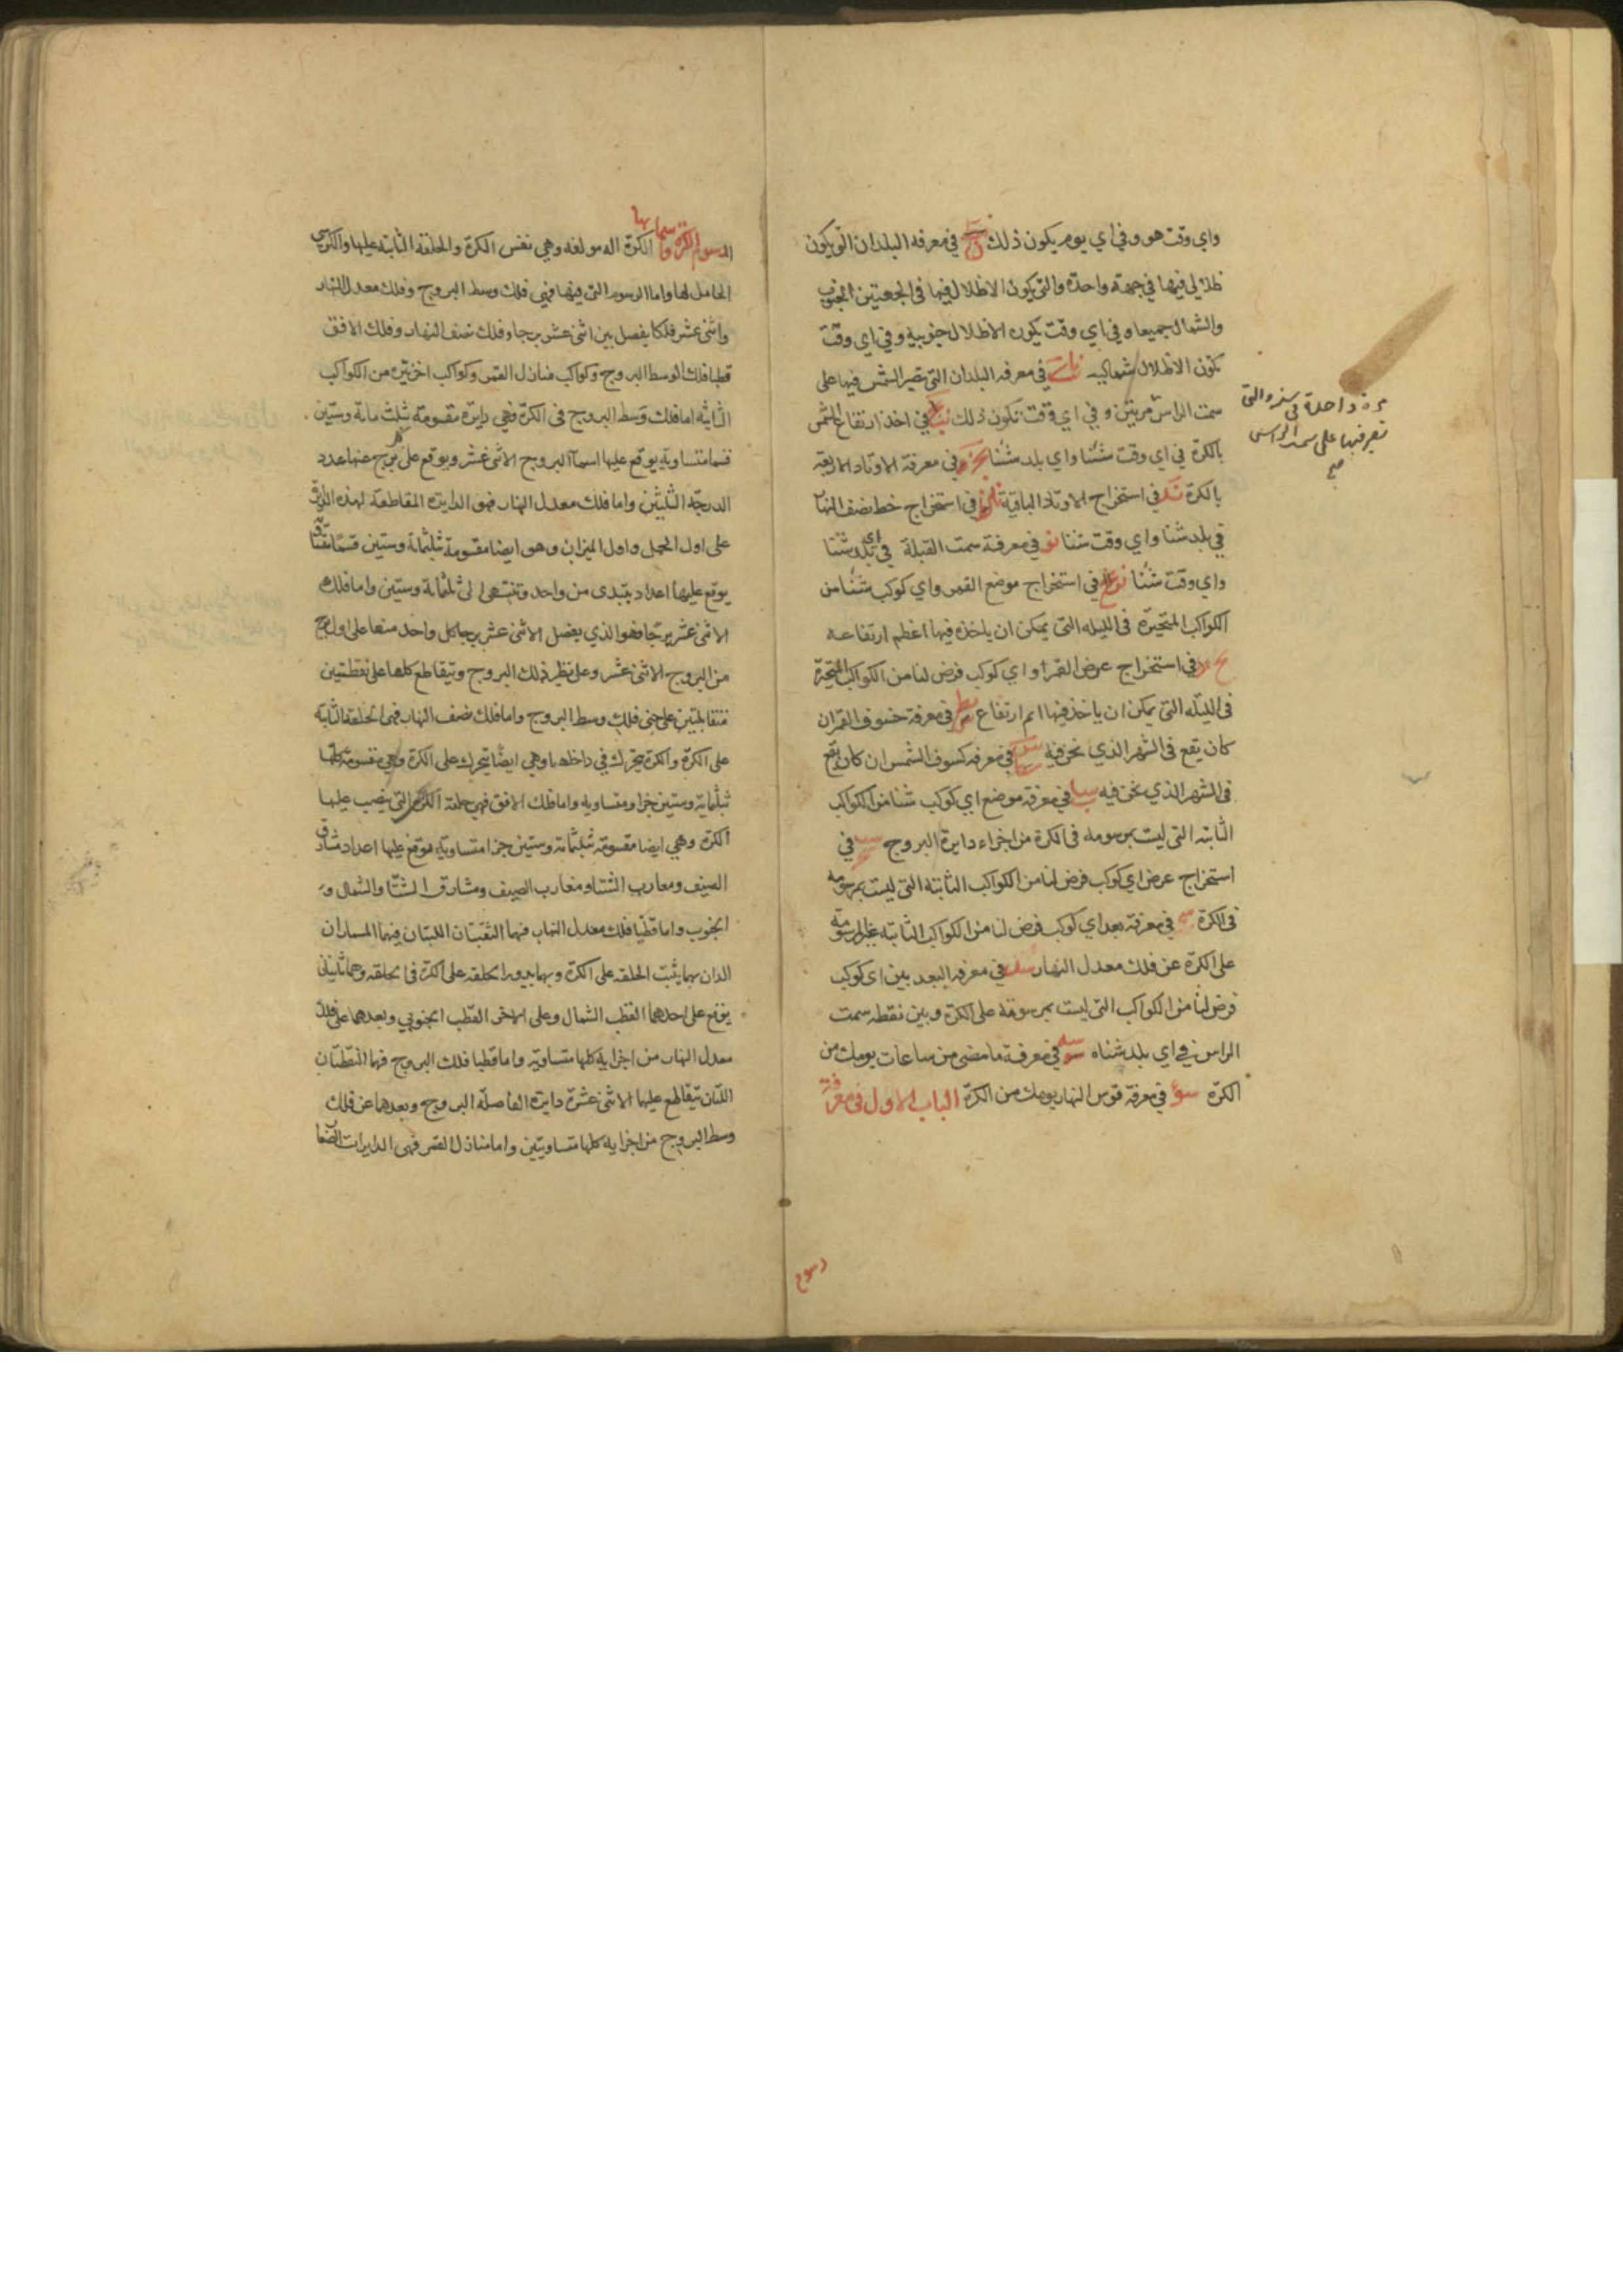 واي وقت هو وفي اي يوم يكون ذلك في معرفه البلدان التي يكون
ظلالها فيها في جهة واحدة والتي يكون الاظلال فيها في الجهتين الجنوب
والشمال جميعا وفي اي وقت يكون الاظلال جنوبية وفي اي وقت
تكون الاظلال شمالية في معرفه البلدان التي تصير الشمس فيها على
مرة واحدة في سنه والتي
تصير فيها على سمت الراس
صح
سمت الراس مرتين وفي اي وقت تكون ذلك في اخذ ارتفاع الشمس
بالكرة في اي وقت شئنا واي بلد شئنا في معرفة الاوتاد الاربعة
بالكرة ند في استخراج الاوتاد الباقية في استخراج خط نصف النها
في بلد شئنا واي وقت شئنا نو في معرفة سمت القبلة في اي بلد شئنا
واي وقت شئنا في استخراج موضع القمر واي كوكب شئنا من
الكواكب المتحيرة في الليلة التي يمكن ان ياخذ فيها اعظم ارتفاعه
في استخراج عرض القمر او اي كوكب فرض لنا من الكواكب المتحيرة
في الليلة التي يمكن ان ياخذ فيها اتم ارتفاع في معرفة خسوف القمر ان
كان يقع في الشهر الذي نحن فيه في معرفه كسوف الشمس ان كان يقع
في الشهر الذي نحن فيه سا في معرفة موضع اي كوكب شئنا من الكواكب
الثابته التي ليست مرسومه في الكرة من اجزاء دايرة البروج سب في
استخراج عرض اي كوكب فرض لنا من الكواكب الثابتة التي ليست بمرسومه
في الكرة في معرفة بعد اي كوكب فرض لنا من الكواكب الثابته غير المرسومة
على الكرة عن فلك معدل النهار سد في معرفه البعد بين اي كوكب
فرض لنا من الكواكب التي ليست بمرسومة على الكرة وبين نقطه سمت
الراس في اي بلد شئناه سه في معرفة ما مضى من ساعات يومك من
الكرة سو في معرفة قوس النهار يومك من الكرة الباب الاول في معرفة
رسوم
الرسوم الكرة واسمايها الكرة اله مولفه وهي نفس الكرة والحلقة الثابته عليها والكرسي
الحامل لها واما الرسوم التي فيها فهي فلك وسط البروج وفلك معدل النهار
واثنى عشر فلكا يفصل بين اثنى عشر برجا وفلك نصف النهار وفلك الافق
قطبا فلك الوسط البروج وكواكب منازل القمر وكواكب اخر نيرة من الكواكب
الثابتة اما فلك وسط البروج في الكرة فهي دايرة مقسومة بثلث مائة وستين
قسما متساوية يوقع عليها اسماآ البروج الاثنى عشر ويوقع على كل برج منها عدد
الدرجة الثلثين واما فلك معدل النهار فهو الدايرة المقاطعة لهذه الدايرة
على اول الحمل واول الميزان وهو ايضا مقسومة بثلثمائة وستين قسما متساوية
يوقع عليها اعداد يبتدى من واحد وتنتهى الى ثلثماية وستين واما فلك
الاثنى عشر برجا فهو الذي يفصل الاثنى عشر برجا كل واحد منها على اول برج
من البروج الاثنى عشر وعلى نظير ذلك البروج ويتقاطع كلها على نقطتين
متقابلتين على جنبى فلك وسط البروج واما فلك نصف النهار فهى الحلقة الثابتة
على الكرة والكرة يتحرك في داخلها وهي ايضا يتحرك على الكرة وهي مقسومة كلها
بثلثماية وستين جزا ومتساويه واما فلك الافق فهي حلقة الكرسي التي ينصب عليها
الكرة وهي ايضا مقسومة بثلثماته وستين جزا متساوية يوقع عليها اعداد مشارق
الصيف ومغارب الشتا ومغارب الصيف ومشارق الشتا والشمال و
الجنوب واما قطبا فلك معدل النهار فهما الثقبتان اللتان فيهما المسماران
الذان بهما يثبت الحلقه على الكرة وبهما يدور الحلقه على الكرة في الحلقه وهما ثابتان
يوقع على احدهما القطب الشمال وعلى الاخر القطب الجنوبي وبعدهما على فلك
معدل النهار من اجزايه كلها متساوية واما قطبا فلك البروج فهما النقطتان
اللتان يتقاطع عليها الاثنى عشرة دايرة الفاصلة البروج وبعدهما عن فلك
وسط البروج من اجزايه كلها متساويتين واما منازل القمر فهي الدايرات الصغا